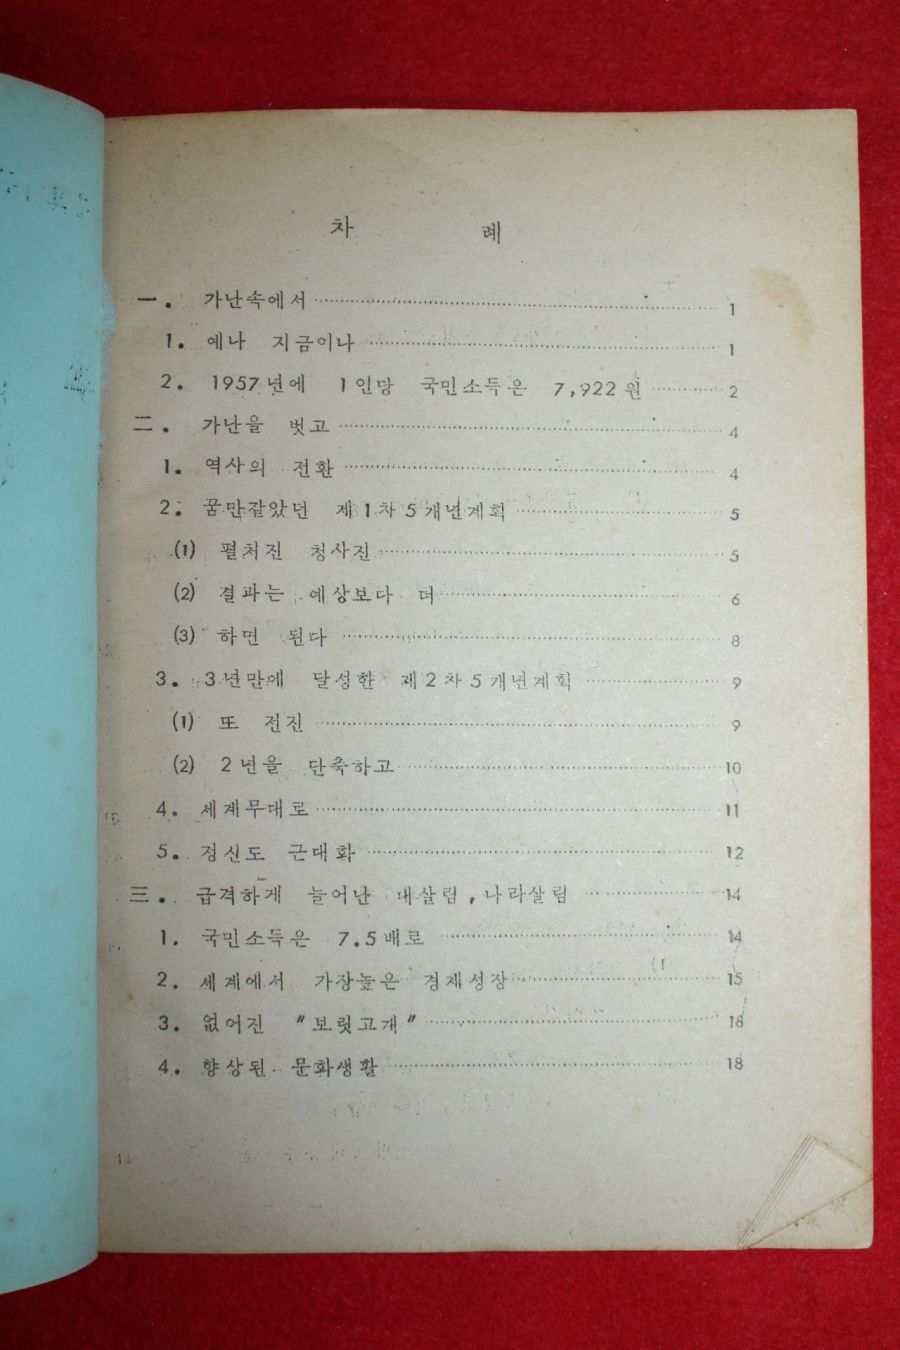 차 례
一. 가난속에서 1
1. 예나 지금이나 1
2. 1957년에 1인당 국민소득은 7,922원 2
二. 가난을 벗고 4
1. 역사의 전환 4
2. 꿈만같았던 제1차5개년계획 5
(1) 펼쳐진 청사진 5
(2) 결과는 예상보다 더 6
(3) 하면 된다 8
3. 3년만에 달성한 제2차5개년계획 9
(1) 또 전진 9
(2) 2년을 단축하고 10
4. 세계무대로 11
5. 정신도 근대화 12
三. 급격하게 늘어난 내살림, 나라살림 14
1. 국민소득은 7.5배로 14
2. 세계에서 가장높은 경제성장 15
3. 없어진 "보릿고개" 18
4. 향상된 문화생활 18